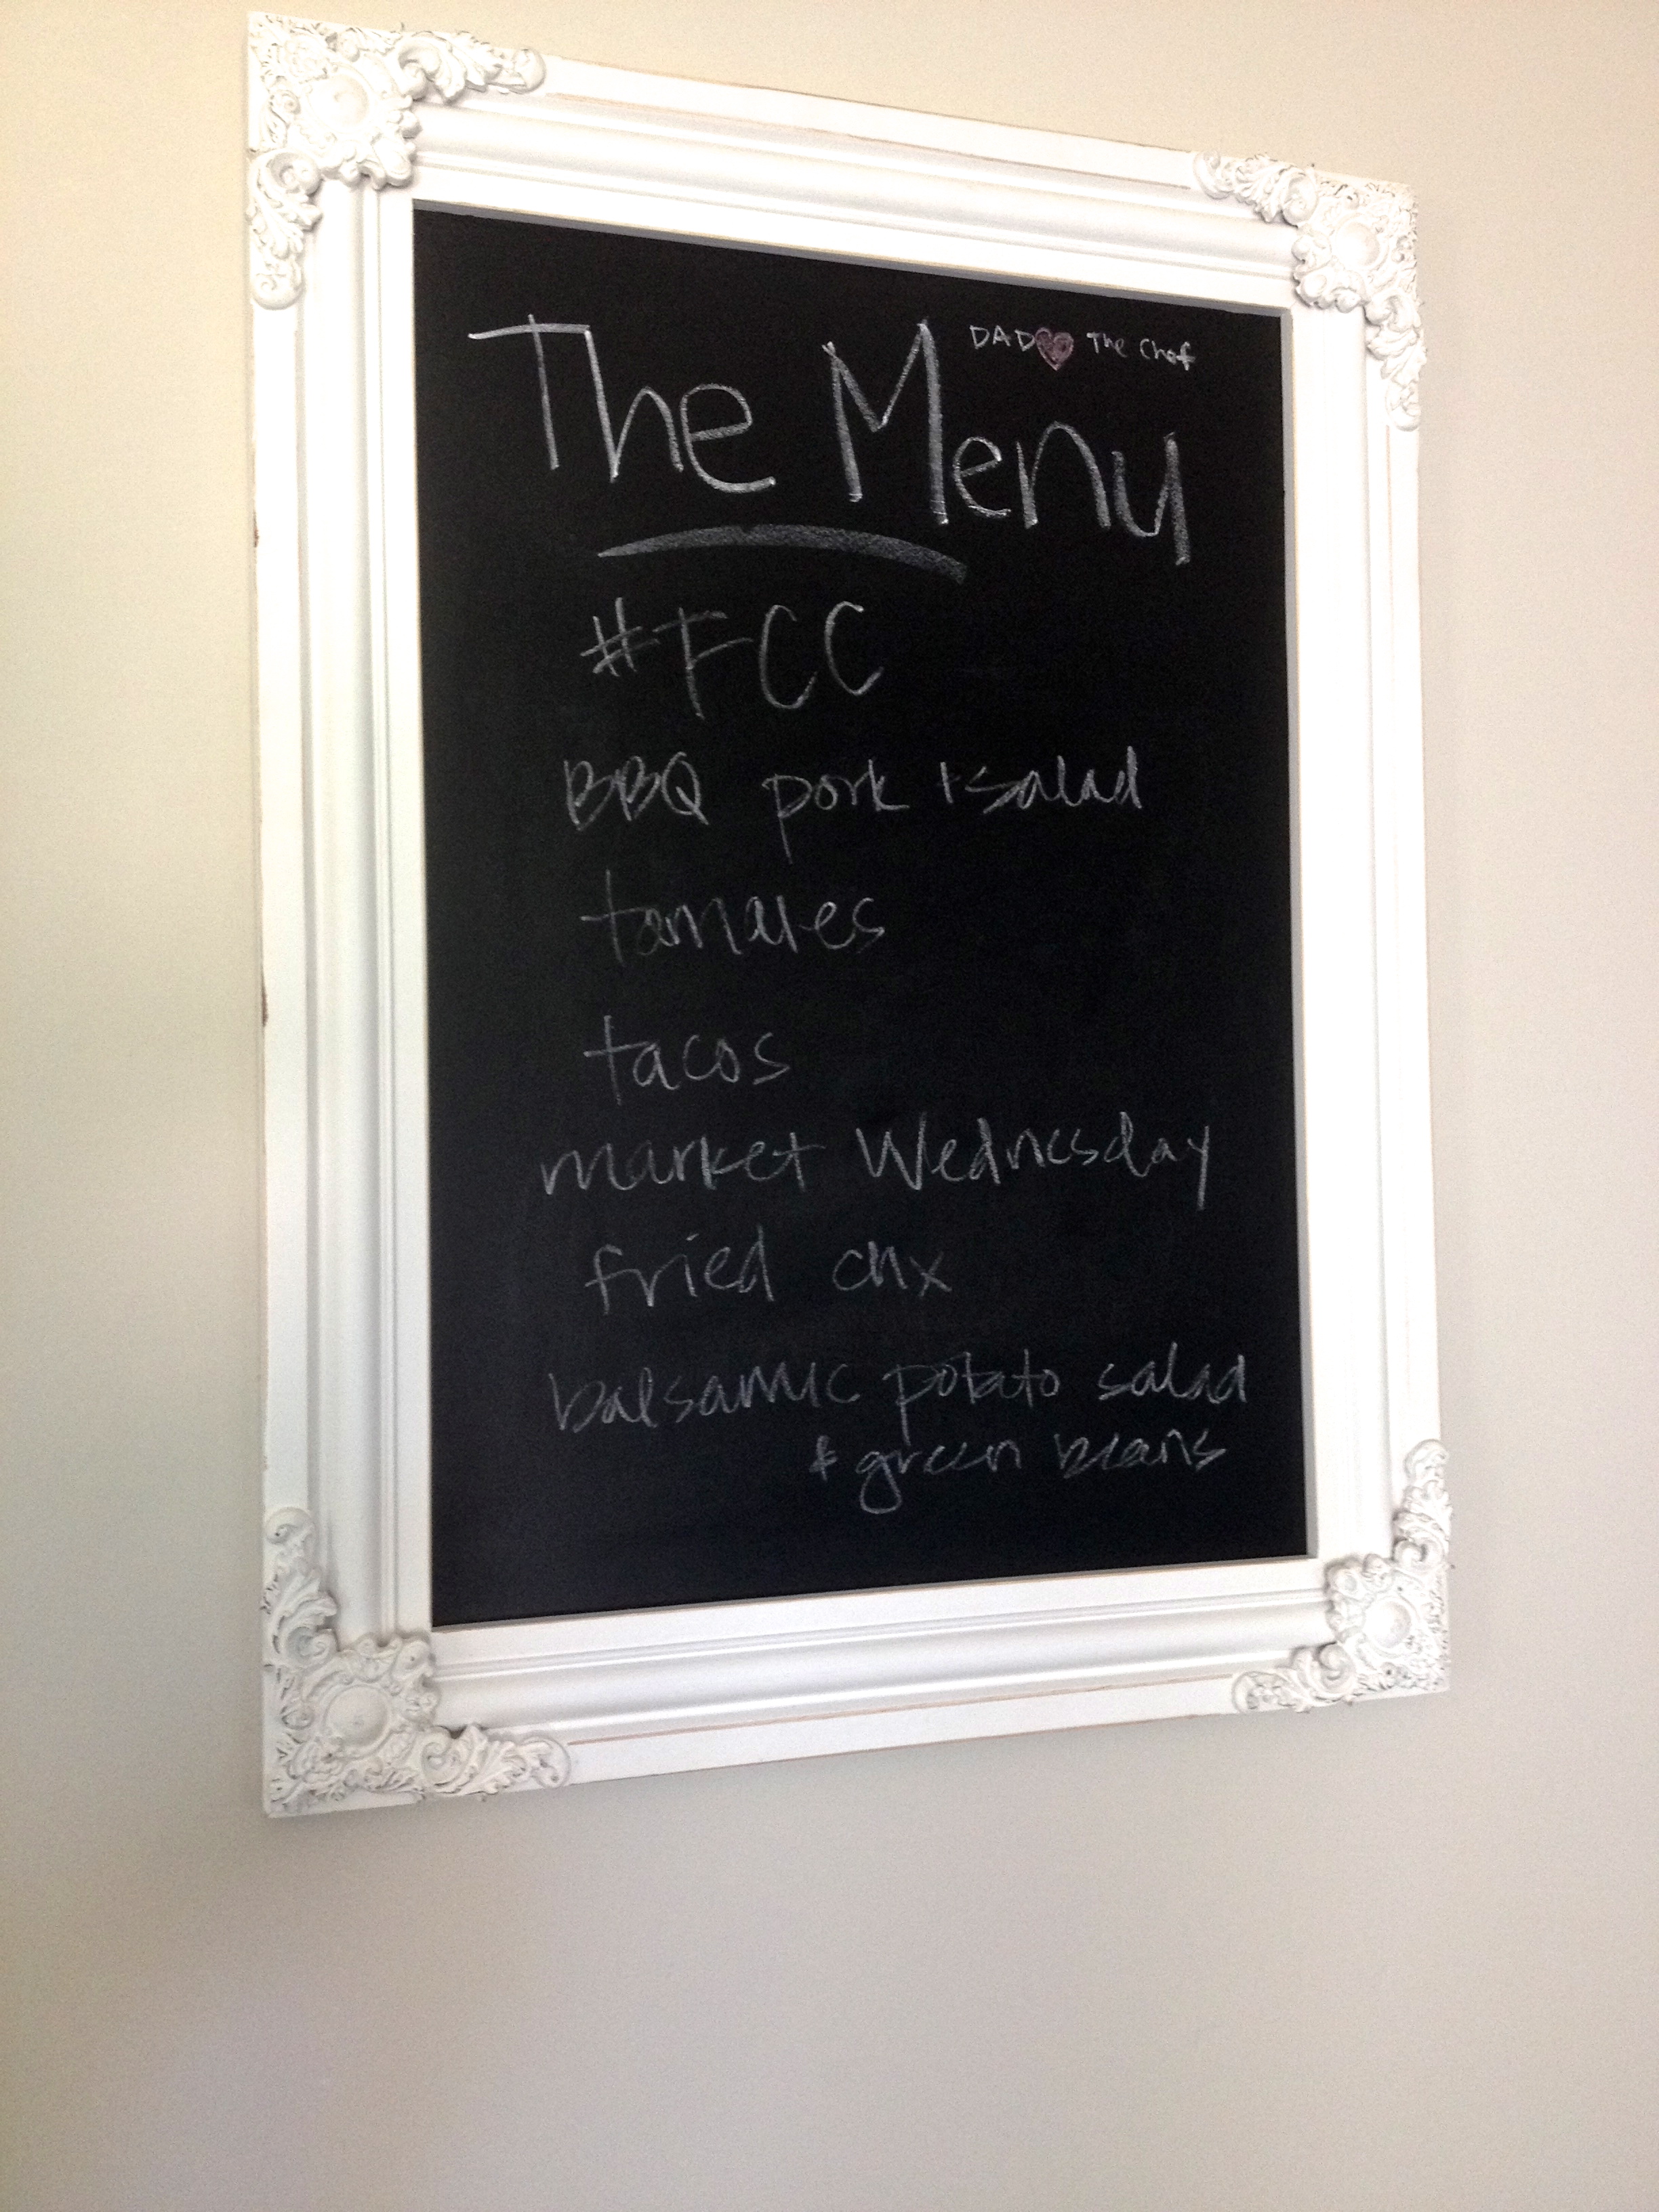 DAD ♥ The Chef
The Menu
#FCC
BBQ pork + salad
tamales
tacos
market Wednesday
fried chx
balsamic potato salad
& green beans